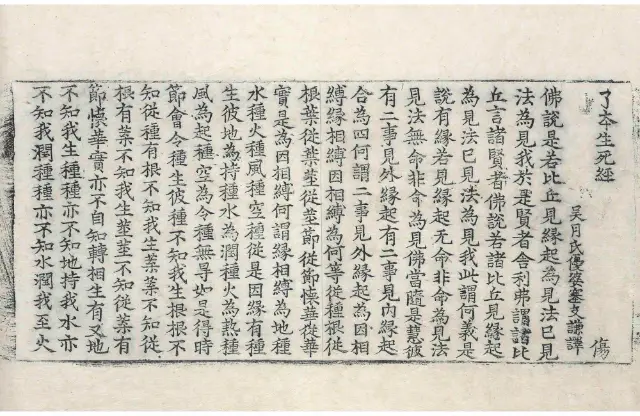 了夲生死經
吳月氏優婆塞支謙譯
傷
佛說是若比丘見緣起為見法已見
法為見我於是賢者舍利弗謂諸比
丘言諸賢者佛說若諸比丘見緣起
為見法已見法為見我此謂何義是
說有緣若見緣起无命非命為見法
見法無命非命為見佛當隨是慧彼
有二事見外緣起有二事見内緣起
合為四何謂二事見外緣起為因相
縛緣相縛因相縛為何等從種根從
根葉從葉莖從莖節從節懷華從華
實是為因相縛何謂緣相縛為地種
水種火種風種空種從是因緣有種
生彼地為持種水為潤種火為熱種
風為起種空為令種無㝵如是得時
節會令種生彼種不知我生根根不
知從種有根不知我生葉葉不知從
根有葉不知我生莖莖不知從葉有
節懷華實亦不自知轉相生有又地
不知我生種種亦不知地持我水亦
不知我潤種種亦不知水潤我至火